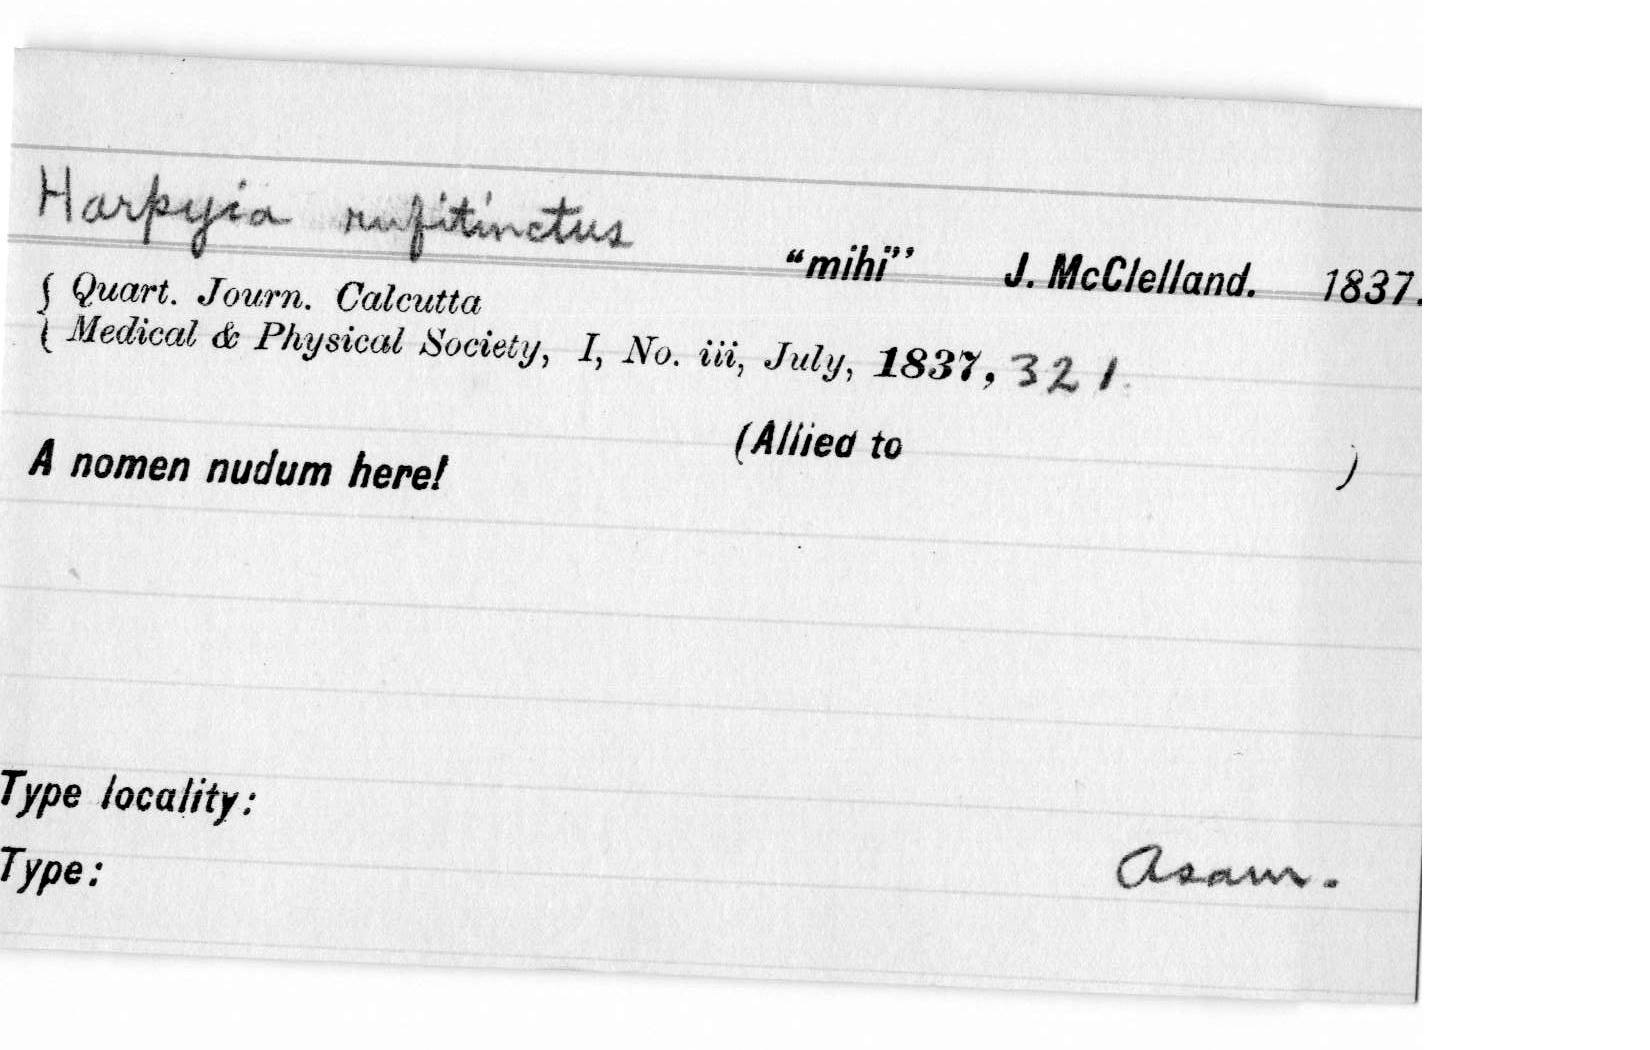 Harpyia rufitinctus "mihi" J. McClelland. 1837.
{ Quart. Journ. Calcutta
{ Medical & Physical Society, I, No. iii, July, 1837, 321.
A nomen nudum here! (Allied to )
Type locality:
Type: Asam.